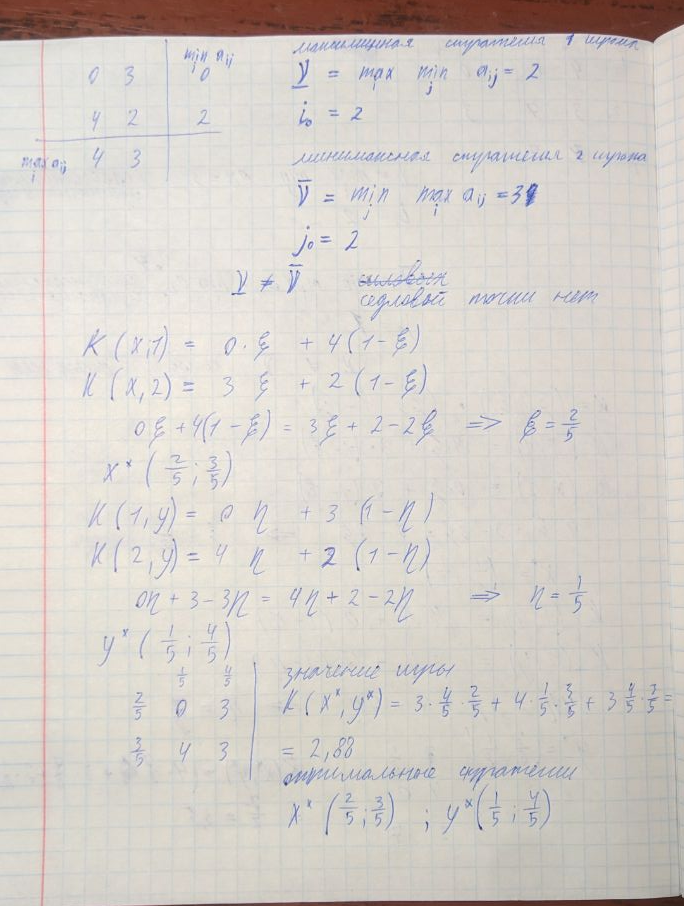 min aij
j
0 3 0
4 2 2
max aij 4 3
i
максиминная стратегия 1 игрока
V = max min aij = 2
i j
i₀ = 2
минимаксная стратегия 2 игрока
V̅ = min max aij = 3
j i
j₀ = 2
V ≠ V̅
седловой точки нет
K(x,1) = 0·ξ + 4(1-ξ)
K(x,2) = 3 ξ + 2(1-ξ)
0ξ+4(1-ξ) = 3ξ + 2-2ξ => ξ = 2/5
x* (2/5; 3/5)
K(1,y) = 0 η + 3 (1-η)
K(2,y) = 4 η + 2 (1-η)
0η + 3-3η = 4η + 2-2η => η = 1/5
y* (1/5; 4/5)
1/5 4/5
2/5 0 3
3/5 4 3
значение игры
K(x*, y*) = 3·4/5·2/5 + 4·1/5·3/5 + 3 4/5·3/5 =
= 2,88
оптимальные стратегии
x* (2/5; 3/5) ; y* (1/5; 4/5)